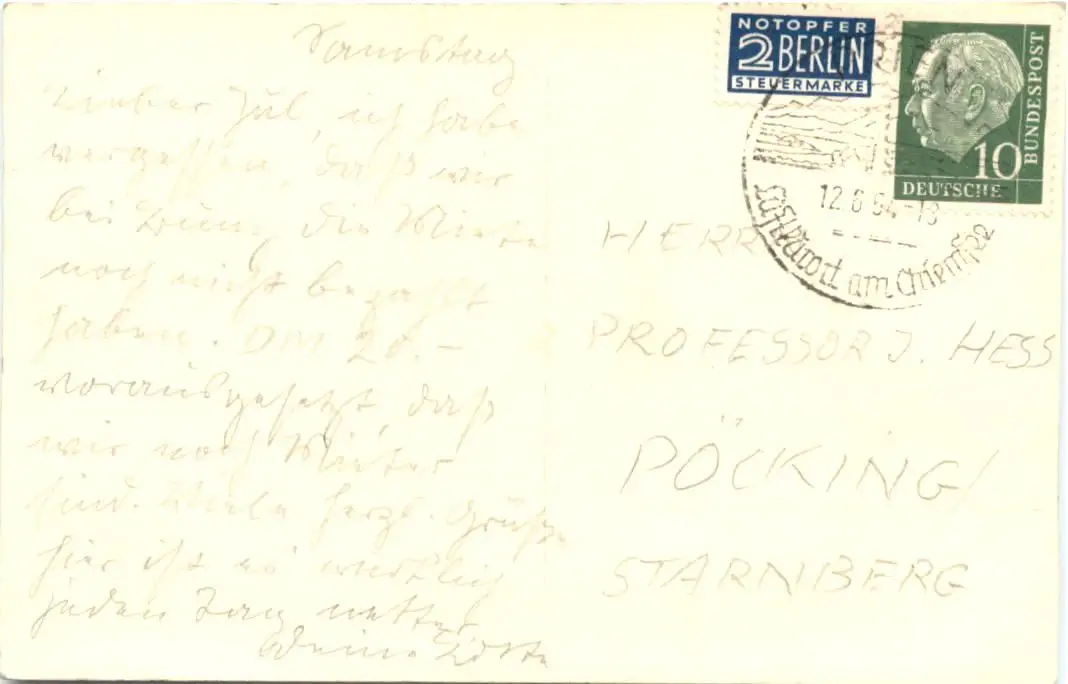 Samstag
Lieber Jul, ich habe
vergessen, daß wir
bei die Miete
noch nicht bezahlt
haben. DM 20.–
vorausgesetzt, daß
wir noch Mieter
sind. Viele herzl. Grüße
hier ist es wirklich
jeden Tag netter
Deine
NOTOPFER
2 BERLIN
STEUERMARKE
10
DEUTSCHE
BUNDESPOST
12.6.54.-18
Luftkurort am Chiemsee
HERR
PROFESSOR J. HESS
PÖCKING/
STARNBERG